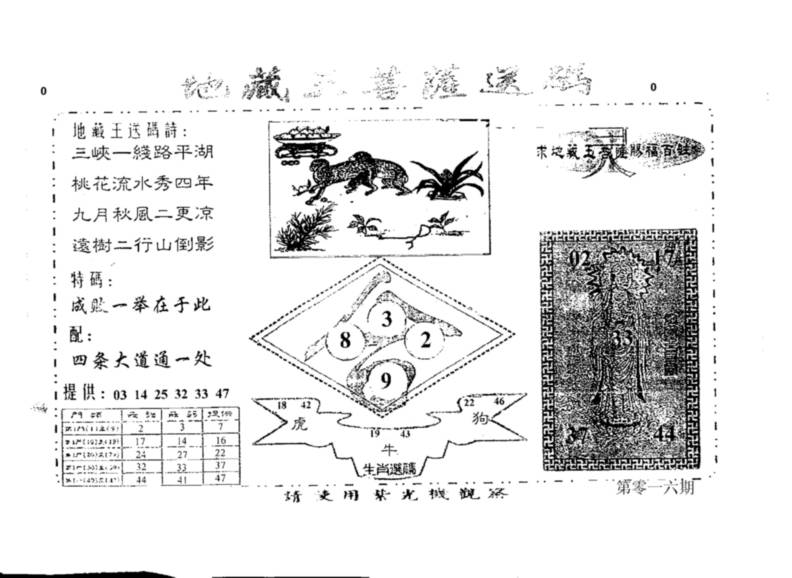 地藏王菩薩送碼
0
0
地藏王送碼詩:
三峽一綫路平湖
桃花流水秀四年
九月秋風二更凉
遠樹二行山倒影
特碼:
成敗一举在于此
配:
四条大道通一处
提供: 03 14 25 32 33 47
2 3 7
17 14 16
24 27 22
32 33 37
44 41 47
3
8 2
9
18 42
虎
19 43
牛
22 46
狗
生肖選譜
請使用紫光機觀察
02 17
33
37 44
第零一六期